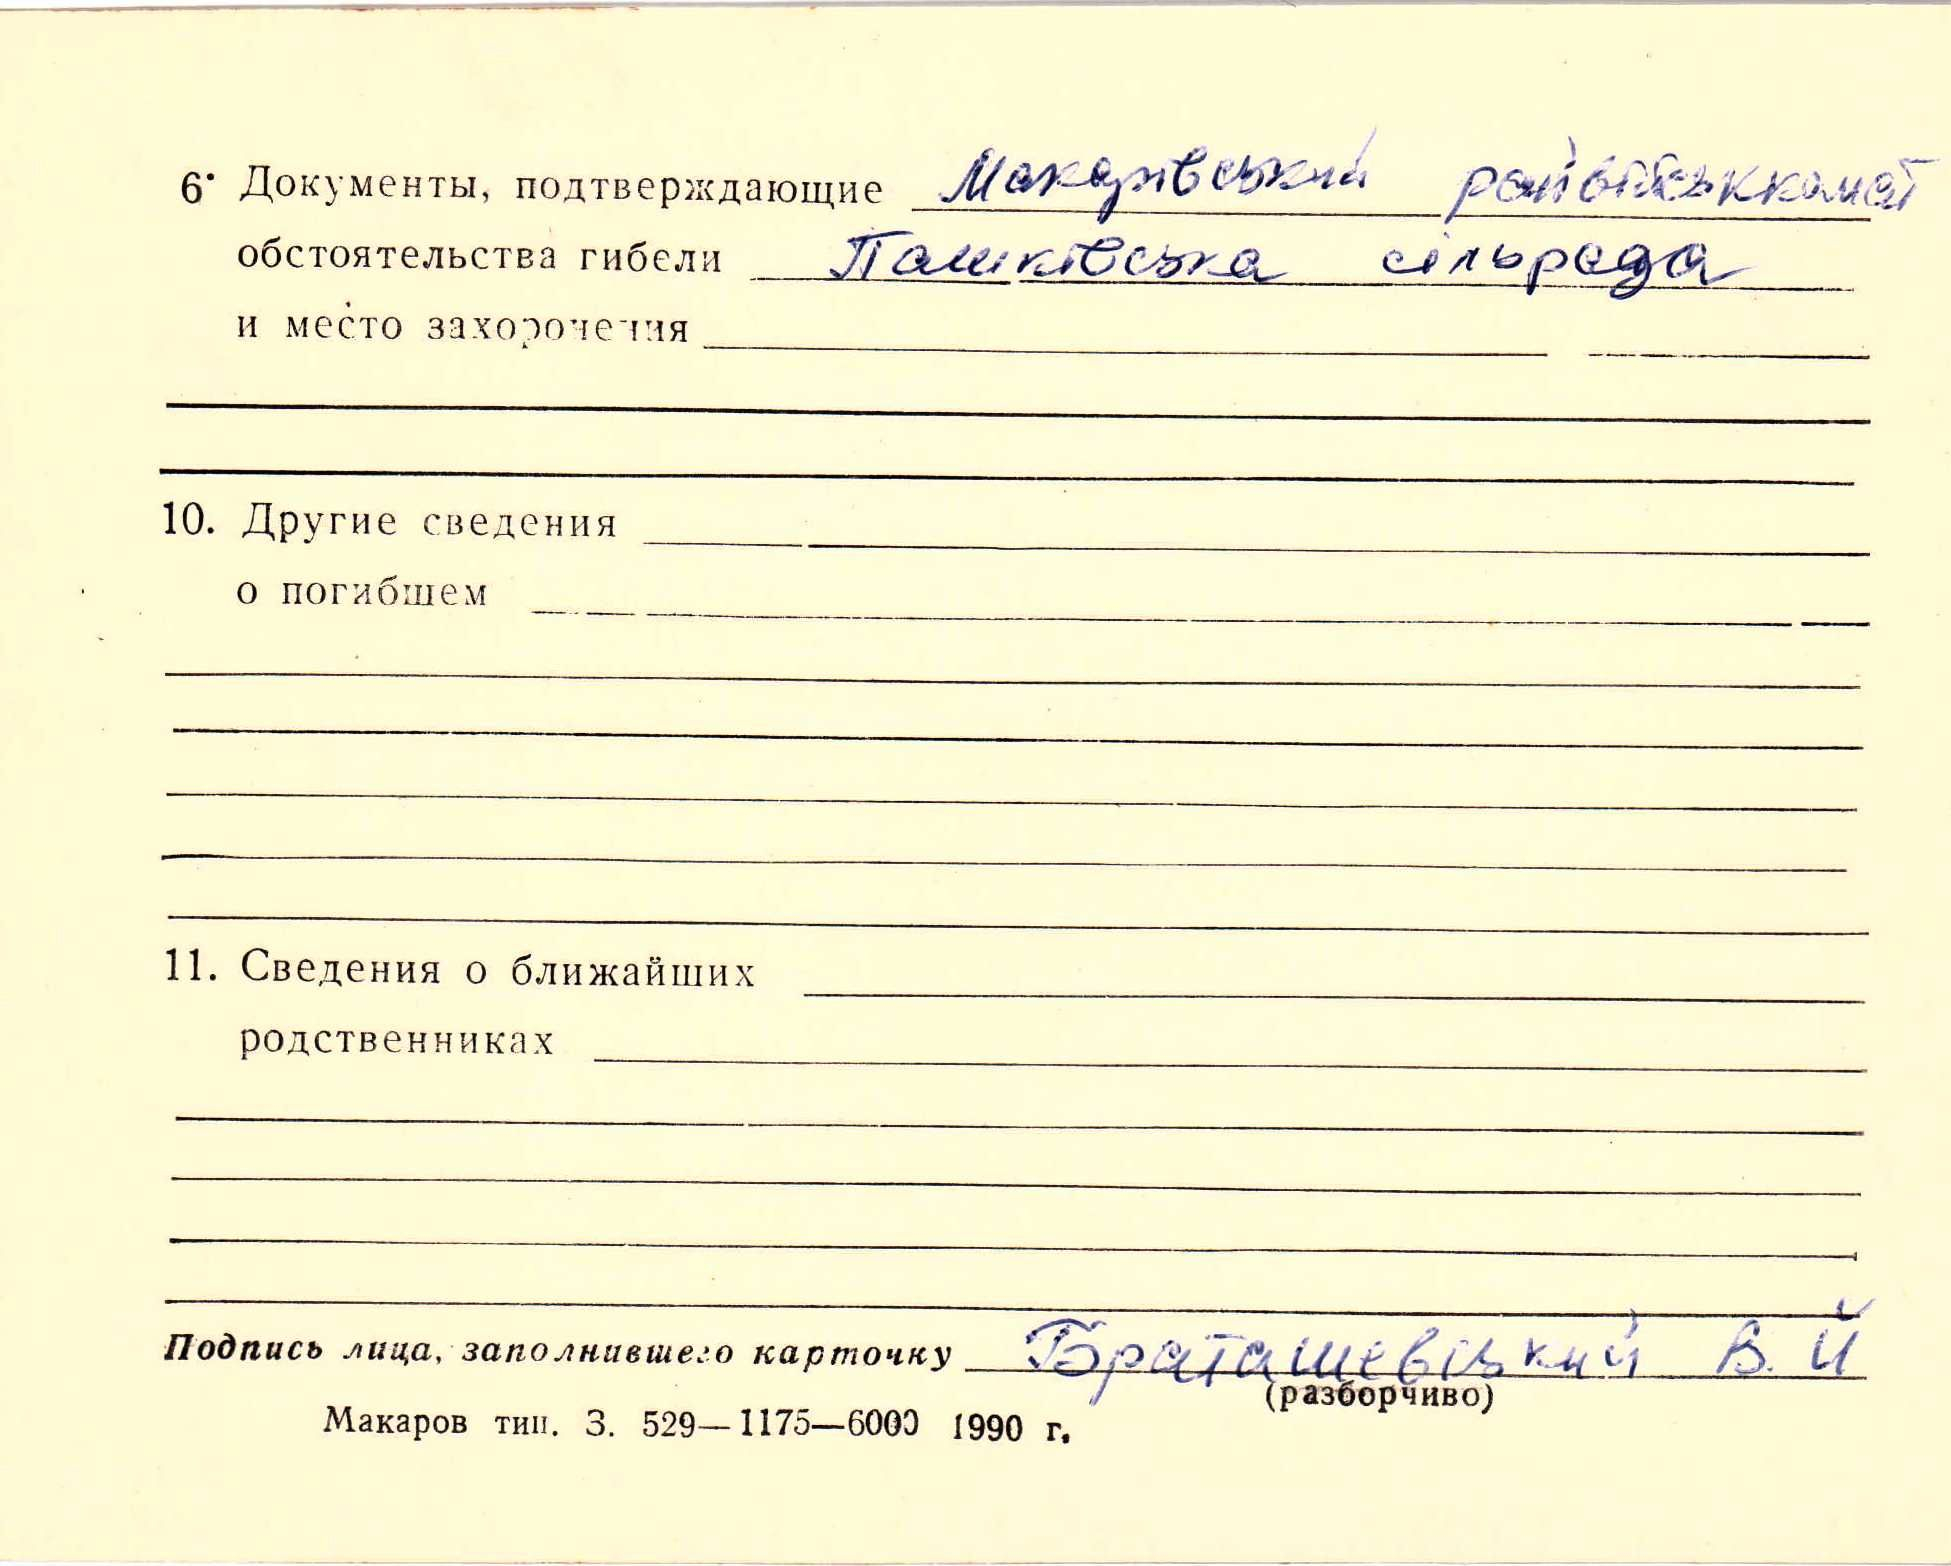 6. Документы, подтверждающие Макарівський райвійськкомат
обстоятельства гибели Пашківська сільрада
и место захоронения
10. Другие сведения
о погибшем
11. Сведения о ближайших
родственниках
Подпись лица, заполнившего карточку Браташевіцький В. Й
(разборчиво)
Макаров тип. З. 529—1175—6000 1990 г.